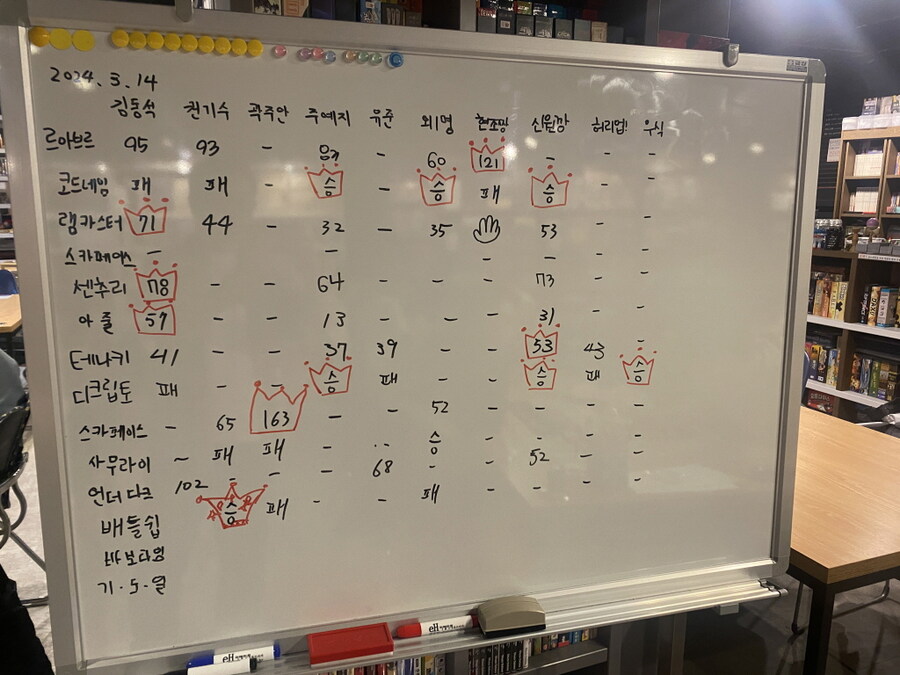 2024.3.14
김동석 권기수 곽주안 주예지 유준 뫼비명 현조망 신월강 허리업! 우식
르아브르 95 93 - - 60 121 - - -
코드네임 패 패 - 승 - 승 패 승 - -
램카스터 71 44 - 32 - 35 53 - -
스카페이스 - - - - - -
센추리 78 - - 64 - - - 73 - -
아줄 57 - - 13 - - - 31 - -
테나키 41 - - 37 39 - - 53 43 -
디크립토 패 - - 승 패 - - 승 패 승
스카페이스 - 65 163 - - 52 - - - -
사무라이 - 패 패 - - 승 - - - -
언더 다크 102 - - - 68 - - 52 - -
배틀쉽 승 패 - - 패 - - - -
바보타임
기.5.월
eH
eH